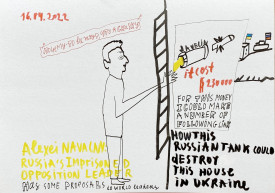 16.04.2022
JAVELIN
it cost
$ 230000
FOR THIS MONEY
I COULD MAKE
A NUMBER OF
FOLLOWING LIKE
Alexei NAVALNY
RUSSIA'S IMPRISONED
OPPOSITION LEADER
HAS SOME PROPOSALS TO WORLD LEADERS
HOW THIS
RUSSIAN TANK COULD
DESTROY
THIS HOUSE
IN UKRAINE